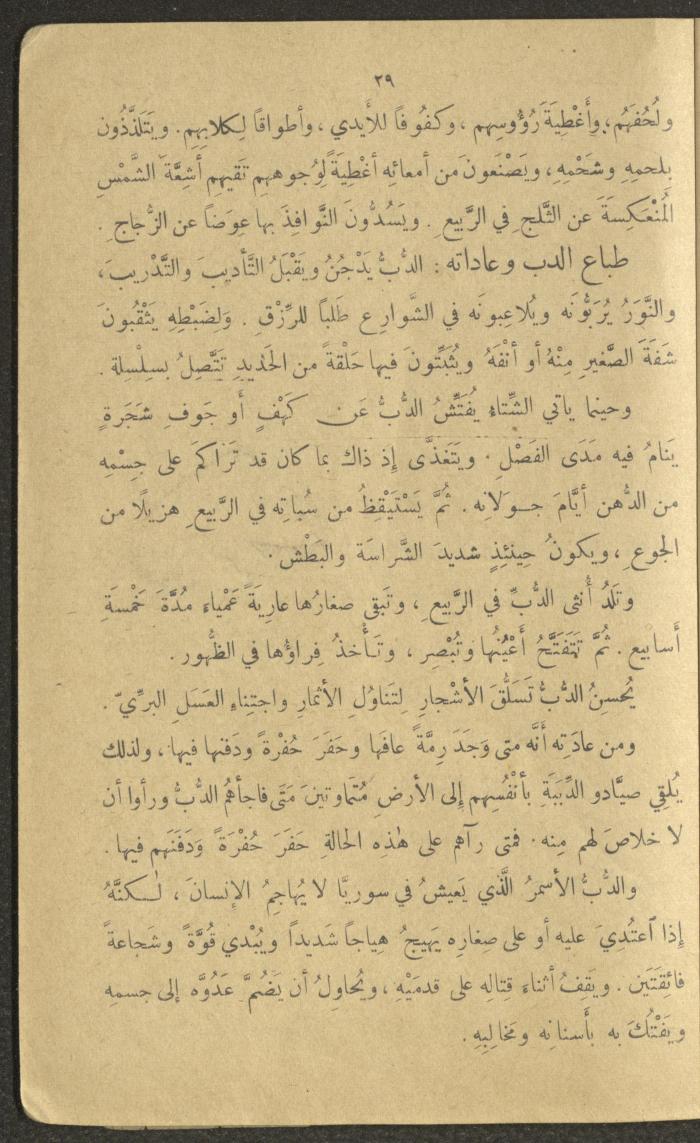 ٢٩
ولُحُفَهُم، وأَغْطِيَةَ رُؤُوسِهم، وكفُوفاً للأَيدي، وأطواقاً لِكلابِهِم. ويَتَلذَّذُون
بلحمِهِ وشَحْمِهِ، ويَصْنَعونَ من أمعائِه أغْطِيَةً لِوُجوههِم تَقيهِم أَشِعَّةَ الشَّمْسِ
المُنْعَكِسَةَ عن الثَّلجِ في الرَّبيعِ. ويَسُدُّونَ النَّوافِذَ بها عِوَضاً عن الزُّجاجِ.
طباع الدب وعاداته: الدُّبُّ يَدْجُنُ ويَقْبَلُ التَّأديبَ والتَّدْريبَ،
والنَّوَرُ يُرَبُّونَه ويُلاعِبونَه في الشَّوارِعِ طَلباً للرِّزْقِ. وَلِضَبْطِهِ يَثْقُبونَ
شَفَةَ الصَّغيرِ مِنْهُ أو أنْفَهُ ويُثَبِّتونَ فيها حَلْقَةً من الحَديدِ تتَّصِلُ بسِلْسِلة.
وحينما ياتي الشِّتاءِ يُفَتِّشُ الدُّبُّ عَن كَهْفٍ أو جَوفِ شَجَرةٍ
يَنامُ فيه مَدَى الفَصْلِ. ويَتَغذَّى إِذ ذاك بما كان قد تَرَاكمَ على جِسْمِه
من الدُّهن أيَّامَ جولانِه. ثُمَّ يَسْتَيْقِظُ من سُباتِه في الرَّبيعِ هزيلًا من
الجوعِ، ويكونُ حِينئِذٍ شديدَ الشَّراسَة والبَطْشِ.
وتَلدُ أُنثى الدُّبِّ في الرَّبيعِ، وتَبقى صغارُها عارِيَةً عَمْياءَ مُدَّةَ خَمْسَةِ
أَسابيع. ثُمَّ تَتَفَتَّحُ أَعْيُنُها وتُبْصِر، وتَأْخذُ فِراؤُها في الظُّهور.
يُحْسِنُ الدُّبُّ تَسَلُّقَ الأشْجارِ لِتَناوُلِ الأثمارِ واجتِناءِ العَسَلِ البرِّيّ.
ومن عادَتِه أَنَّه متى وَجَدَ رِمَّةً عافَها وحَفَرَ حُفْرةً ودَفنها فيها، ولذلك
يُلقِي صيَّادو الدِّبَبَةِ بأَنْفُسِهم إِلى الأرضِ مُتَماوتينَ مَتَى فاجأَهُمُ الدُّبُّ ورأوا أن
لا خلاصَ لهم مِنه. فمتى رآهم على هٰذِه الحالةِ حَفَرَ حُفْرَةً وَدَفَنَهم فيها.
والدُّبُّ الأسمرُ الَّذي يَعيشُ في سوريَّا لا يُهاجِمُ الإنسانَ، لٰكنَّهُ
إِذا ٱعتُدِيَ عليه أو على صِغارِه يَهيجُ هِياجاً شَديداً ويُبْدي قُوَّةً وشَجاعةً
فائِقَتَين. ويَقِفُ أثناءَ قِتالِه على قدمَيْهِ، ويُحاوِلُ أن يَضُمَّ عَدُوَّه إلى جسمِهِ
ويَفْتُكَ به بأَسنانِه ومَخالِبِهِ.